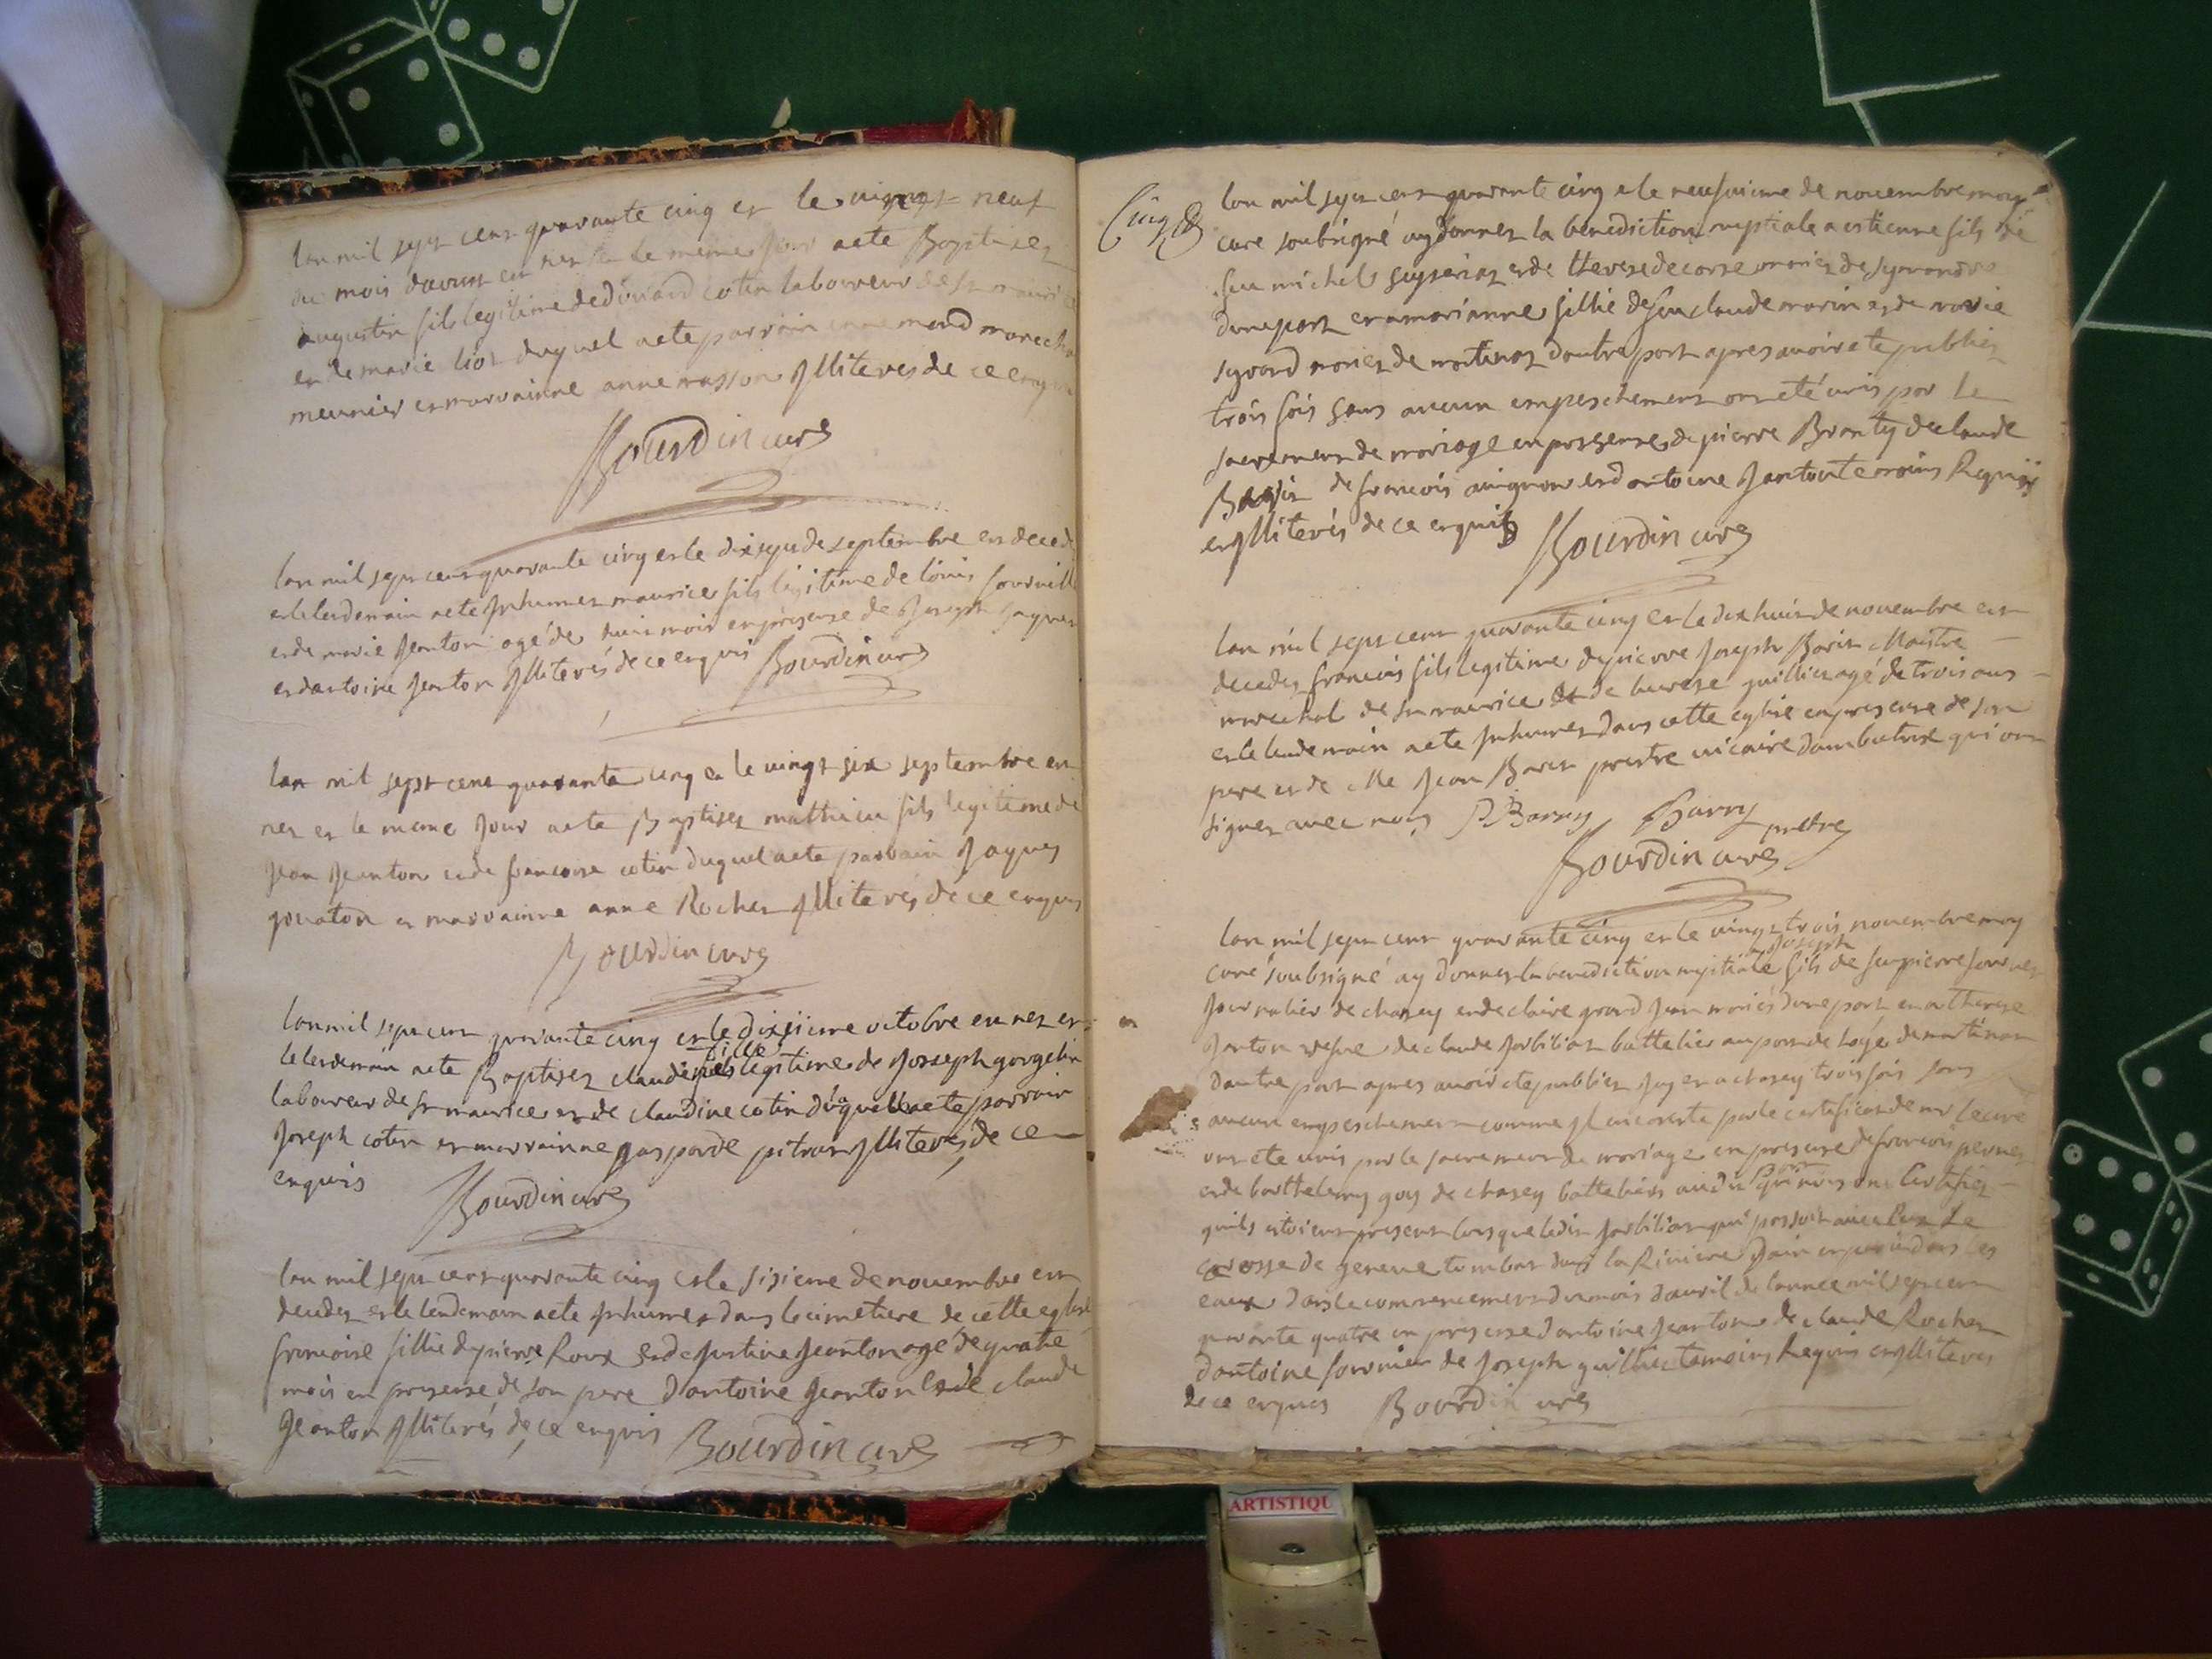 lan mil sept cens quarante cinq et le vingt neuf
du mois daoust est nez et le meme jour aete Baptisez
augustin fils legitime dedouard cotin laboureur de st mauri
et de marie liot duquel aete parrain ennemond marecha
meunier et marrainne anne masson Illiteres de ce enquis
Bourdin curé
lan mil sept cens quarante cinq et le dixsept de septembre est deced
et le lendemain aete Inhumez maurice fils legitime de louis fournill
et de marie Jeanton agé de huit mois en presense de Joseph Jaques
et dantoine Jeanton Illiterés de ce enquis Bourdin curé
lan mil sept cens quarante cinq et le vingt six septembre est
nez et le meme jour aete Baptisez mathieu fils legitime de
Jean Jeanton et de francoise cotin duquel aete parrain Jaques
jonaton et marrainne anne Rocher Illiterés de ce enquis
Bourdin curé
lan mil sept cens quarante cinq et le dixsiieme octobre est nez et
le lendemain aete Baptisez claudine fille legitime de Josseph gorgelin
laboureur de st maurice et de claudine cotin duquelle aete parrain
Joseph cotin et marrainne gasparde pitrat Illiteres de ce
enquis Bourdin curé
lan mil sept cens quarante cinq et le sixieme de novembre est
decedez et le lendemain aete Inhumez dans le cimetiere de cette eglise
francoise fillie de pierre Roux et de Justine Jeanton agé de quatre
mois en presense de son pere dantoine Jeanton et de claude
Jeanton Illiterés de ce enquis Bourdin curé
Cinq
lan mil sept cens quarante cinq et le neufvieme de novembre moy
curé soubsigné ay donnez la benediction nuptiale a estienne fils de
feu michel et de therese decorse
dune part et a marianne fillie de feu claude marin et de marie
mariez de martinaz dautre part apres avoir ete publiez
trois fois sans aucun empeschement ont eté unis par le
sacrement de mariage en presense de pierre Branty de claude
de francois avignon et dantoine Janton temoins Requis
et Illiterés de ce enquis Bourdin curé
lan mil sept cens quarante cinq et le dix huit de novembre est
decedez francois fils legitime de pierre Joseph Barin Maistre
marechal de st maurice et de lucrese guilliez agé de trois ans
et le lendemain aete Inhumez dans cette eglise en presense de son
pere et de Me Jean Barin prestre vicaire dambutrix qui ont
signez avec nous P Barry Barry pretre
Bourdin curé
lan mil sept cens quarante cinq et le vingt trois novembre moy
curé soubsigné ay donnez la benediction nuptiale a Joseph fils de feu pierre fournier
journalier de chasey et de claire grand Jean mariés dune part et a therese
Janton vefve de claude Jorbiliat battelier au port de loye de martinaz
dautre part apres avoir ete publiez Icy et a chasey trois fois sans
aucun empeschement comme Il conste par le certificat de mr le curé
ont ete unis par le sacrement de mariage en presense de francois
et de barthelemy guy de chasey batteliers audit qui nous ont certifiez
quils etoient present lorsque ledit Jorbiliat qui passoit avec eux le
carosse de geneve tombat dans la Riviere dain et perit dans les
eaux dans le commencement du mois davril de lannee mil sept cens
quarante quatre en presense dantoine Jeanton de claude Rocher
dantoine fournier de Joseph guillier temoins Requis et Illiteres
de ce enquis Bourdin curé
ARTISTIQU